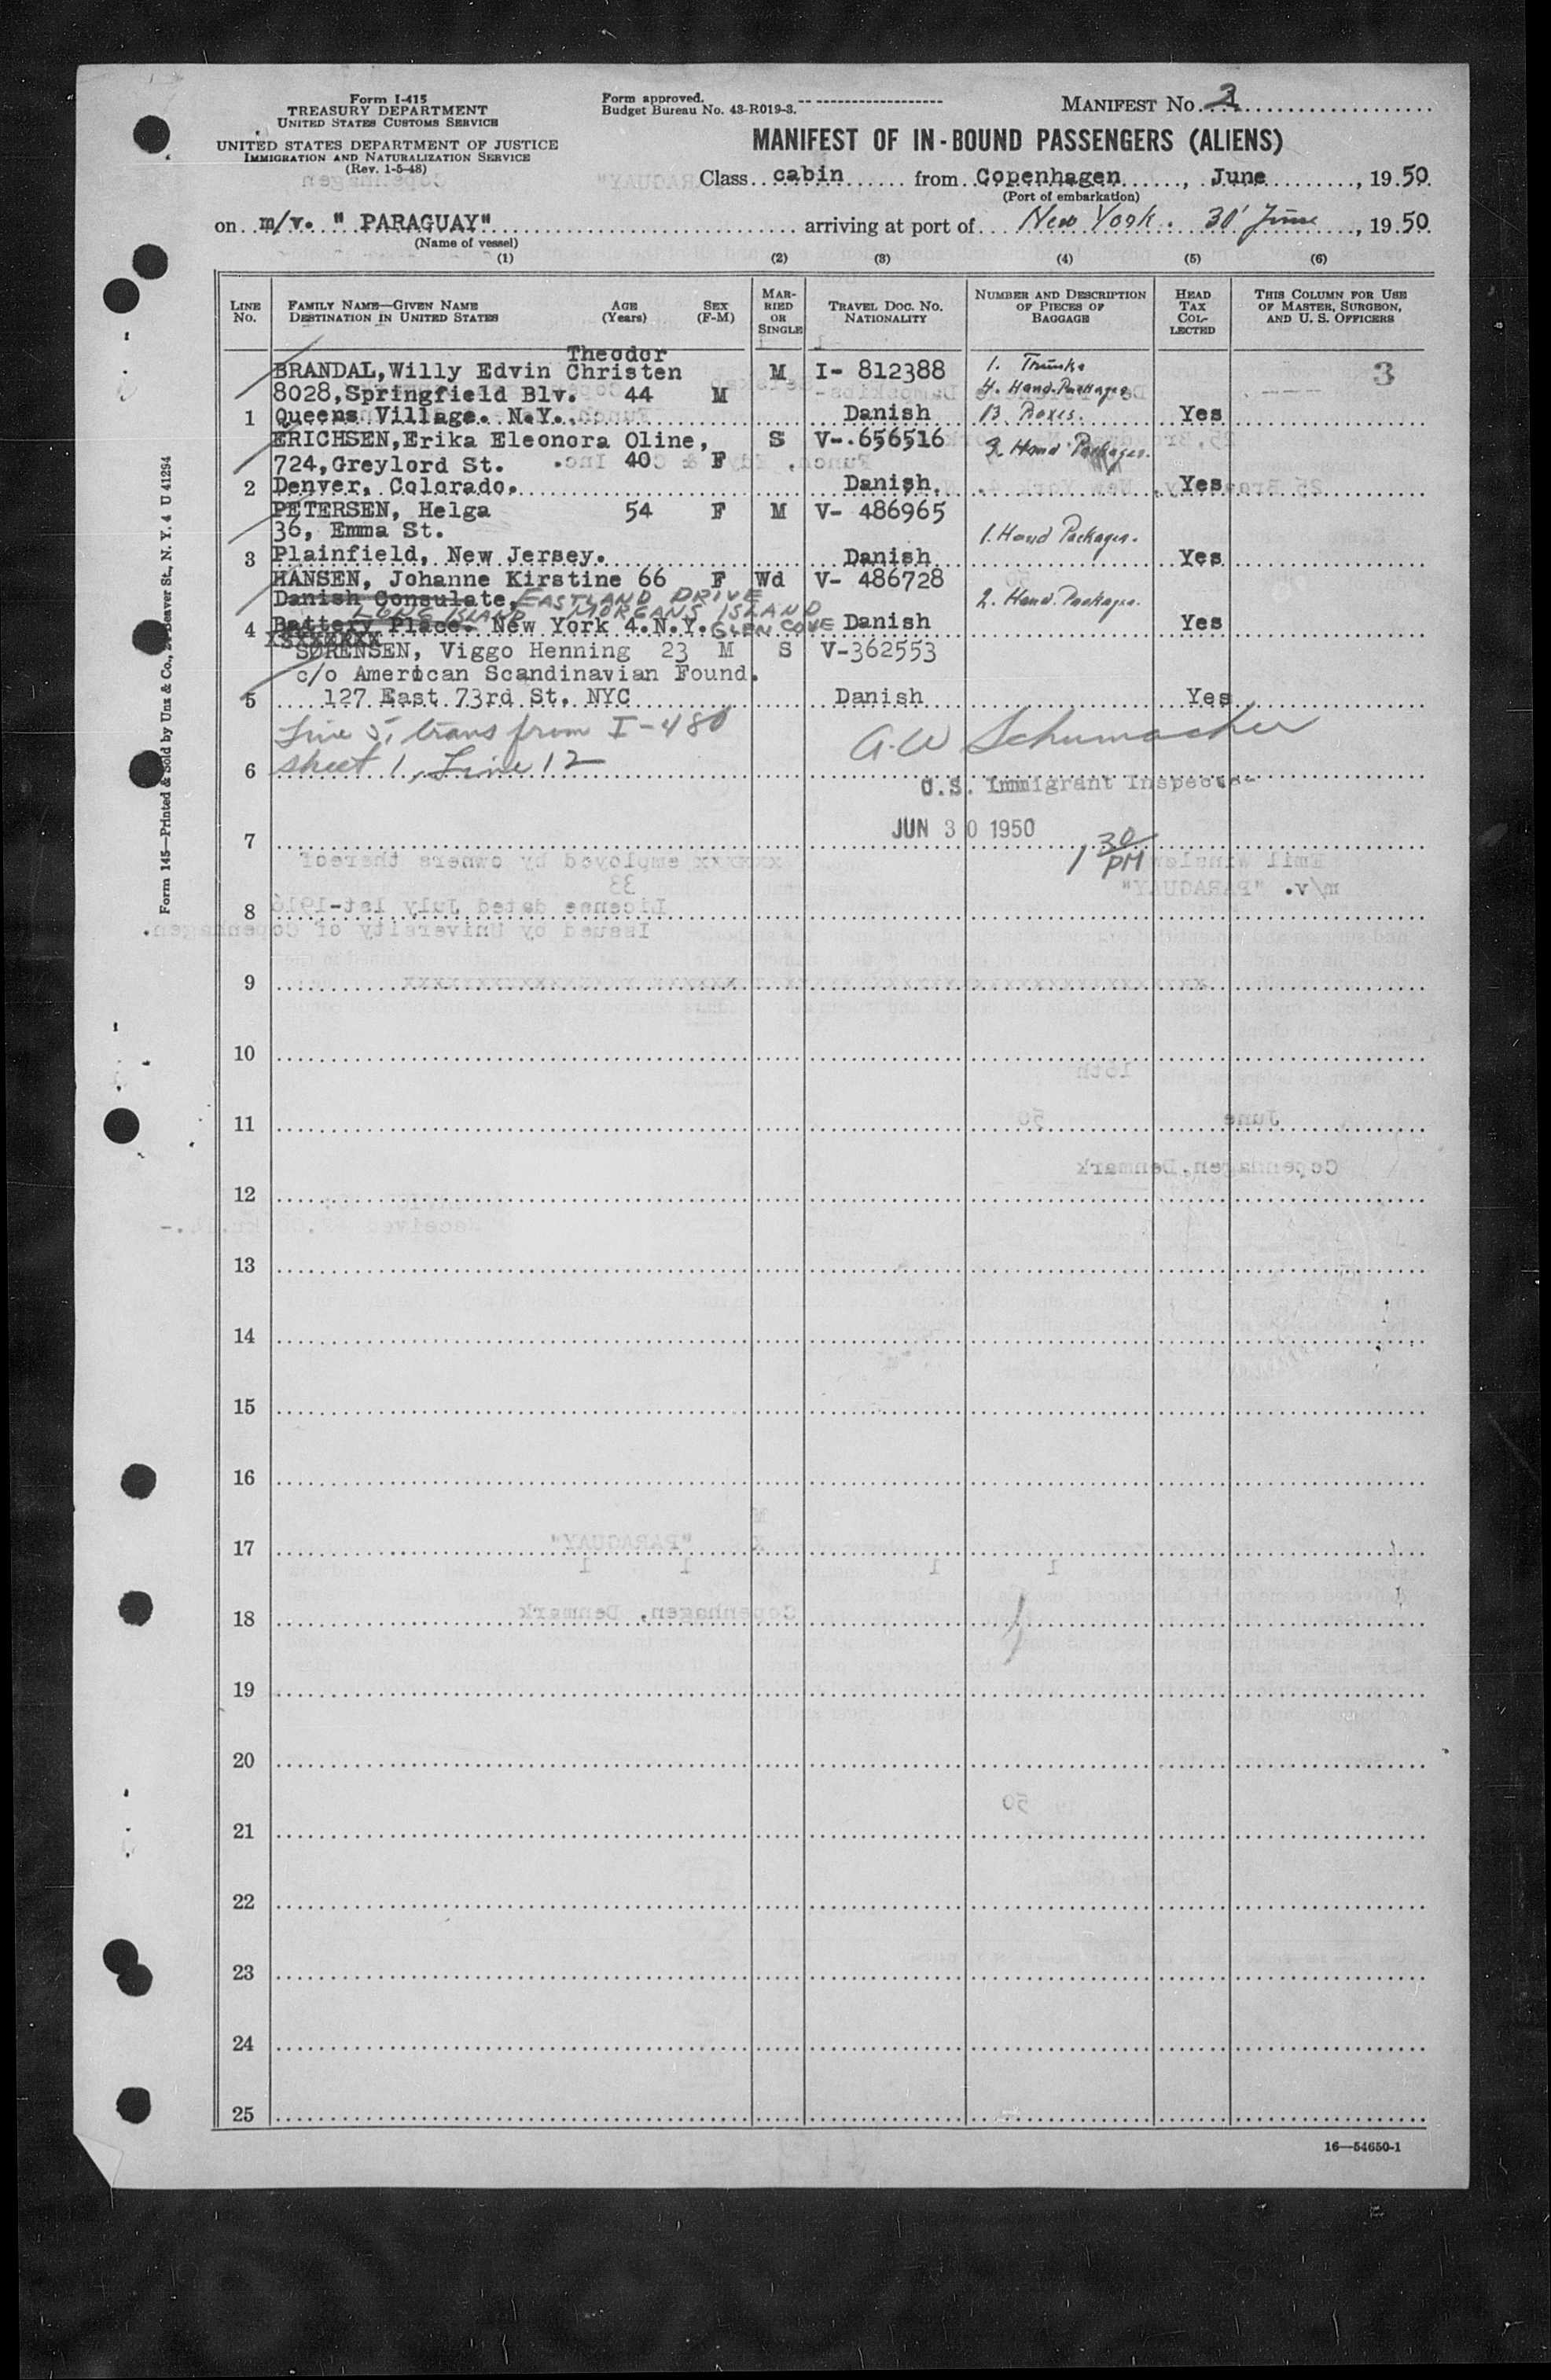 Form I-415
TREASURY DEPARTMENT
UNITED STATES CUSTOMS SERVICE
UNITED STATES DEPARTMENT OF JUSTICE
IMMIGRATION AND NATURALIZATION SERVICE
(Rev. 1-5-48)
Form approved.
Budget Bureau No. 43-R019-3.
MANIFEST No. 3
MANIFEST OF IN-BOUND PASSENGERS (ALIENS)
Class cabin from Copenhagen, June, 1950
(Port of embarkation)
on m/v. " PARAGUAY" arriving at port of New York. 30' June, 1950
(Name of vessel)
(1) (2) (3) (4) (5) (6)
LINE No. FAMILY NAME—GIVEN NAME DESTINATION IN UNITED STATES AGE (Years) SEX (F-M) MARRIED OR SINGLE TRAVEL DOC. NO. NATIONALITY NUMBER AND DESCRIPTION OF PIECES OF BAGGAGE HEAD TAX COLLECTED THIS COLUMN FOR USE OF MASTER, SURGEON, AND U. S. OFFICERS
Theodor
BRANDAL,Willy Edvin Christen M I- 812388 1. Trunks 3
8028,Springfield Blv. 44 M 4. Hand.Packages
1 Queens Village. N.Y. Danish 13. Boxes. Yes
ERICHSEN,Erika Eleonora Oline, S V-.656516 3. Hand Packages.
724,Greylord St. 40 F
2 Denver, Colorado. Danish. Yes
PETERSEN, Helga 54 F M V- 486965
36, Emma St. 1. Hand Packages.
3 Plainfield, New Jersey. Danish Yes
HANSEN, Johanne Kirstine 66 F Wd V- 486728
Danish Consulate, EASTLAND DRIVE 2. Hand. Packages.
LONG ISLAND MORGANS ISLAND
4 Battery Place. New York 4.N.Y. GLEN COVE Danish Yes
SØRENSEN, Viggo Henning 23 M S V-362553
c/o American Scandinavian Found.
5 127 East 73rd St. NYC Danish Yes
Line 5, trans from I-480
A.W Schumacher
6 sheet 1, Line 12
U.S. Immigrant Inspector
JUN 30 1950
1 30 PM
7
8
9
10
11
12
13
14
15
16
17
18
19
20
21
22
23
24
25
16—54650-1